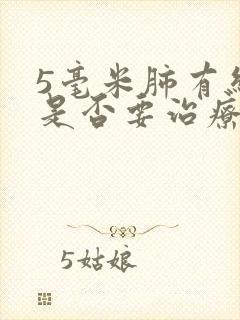 5毫米肺有
是否要治疗
5姑娘